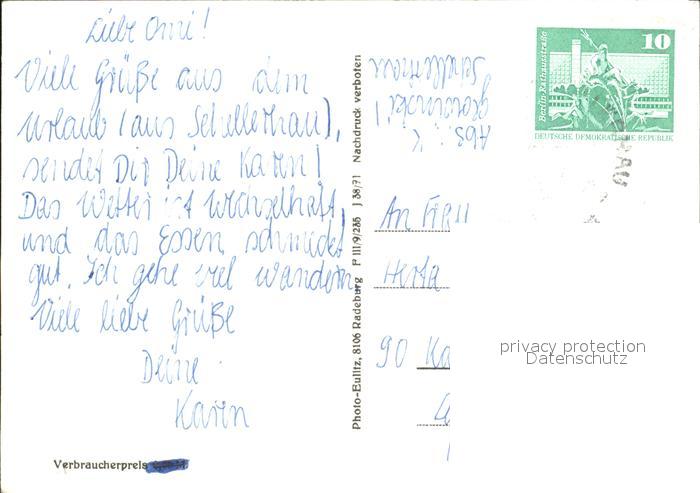 Liebe Omi!
Viele Grüße aus dem
Urlaub (aus Schellerhau),
sendet Dir Deine Karin!
Das Wetter ist wechselhaft,
und das Essen schmeckt
gut. Ich gehe viel wandern.
Viele liebe Grüße
Deine
Karin
Verbraucherpreis
Photo-Eulitz, 8106 Radeburg P III/9/235 J 38/71 Nachdruck verboten
Abs.: K.
Schellerhau
Berlin-Rathausstraße
10
DEUTSCHE DEMOKRATISCHE REPUBLIK
An Frau
Herta
90 Ka
privacy protection
Datenschutz